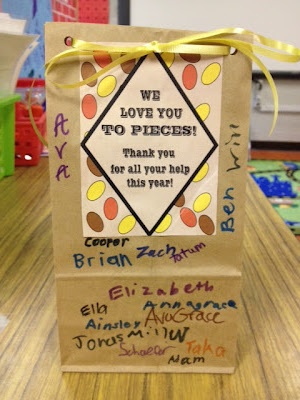 WE
LOVE YOU
TO PIECES!
Thank you
for all your help
this year!
AVA
Ben Will
Cooper
Brian Zach Tatum
Elizabeth
Ella Annagrace
Ainsley AvaGrace
Jonas Mill W
Schaefer Taka
Adam